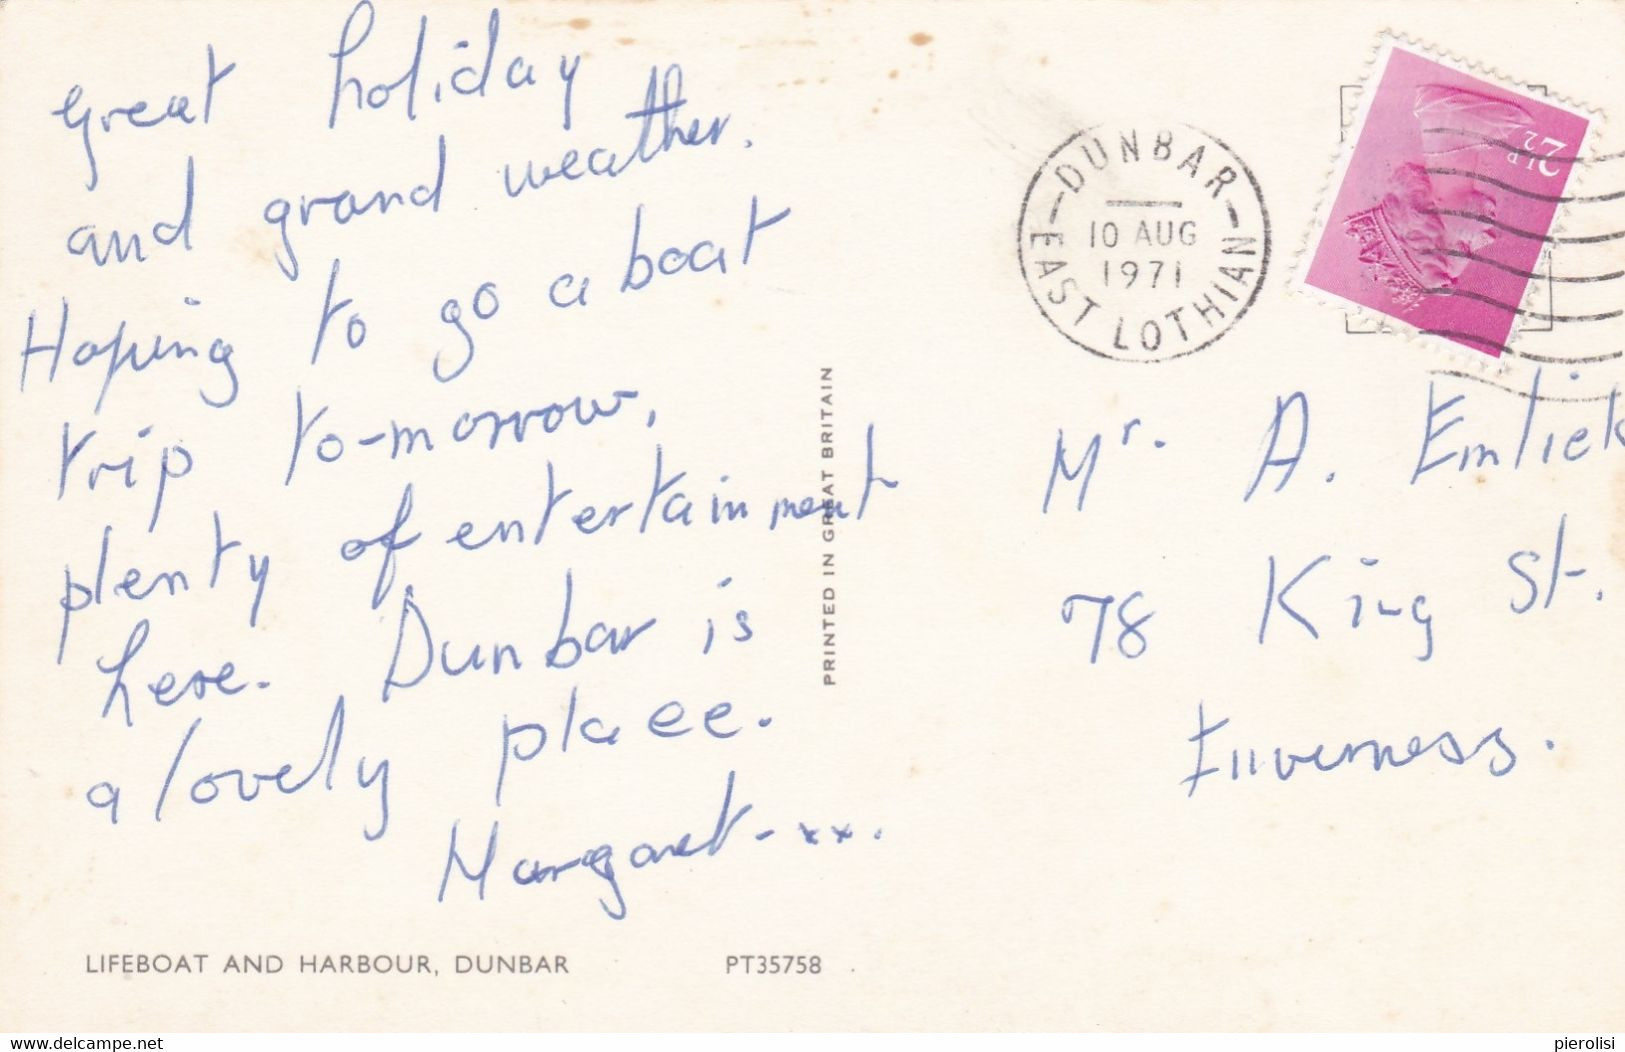 Great holiday
and grand weather.
Hoping to go a boat
trip to-morrow,
plenty of entertainment
here. Dunbar is
a lovely place.
Margaret - xx.
LIFEBOAT AND HARBOUR, DUNBAR
PT35758
PRINTED IN GREAT BRITAIN
DUNBAR
10 AUG
1971
EAST LOTHIAN
2½P
Mr. A.
78 King St.
Inverness.
delcampe.net
pierolisi